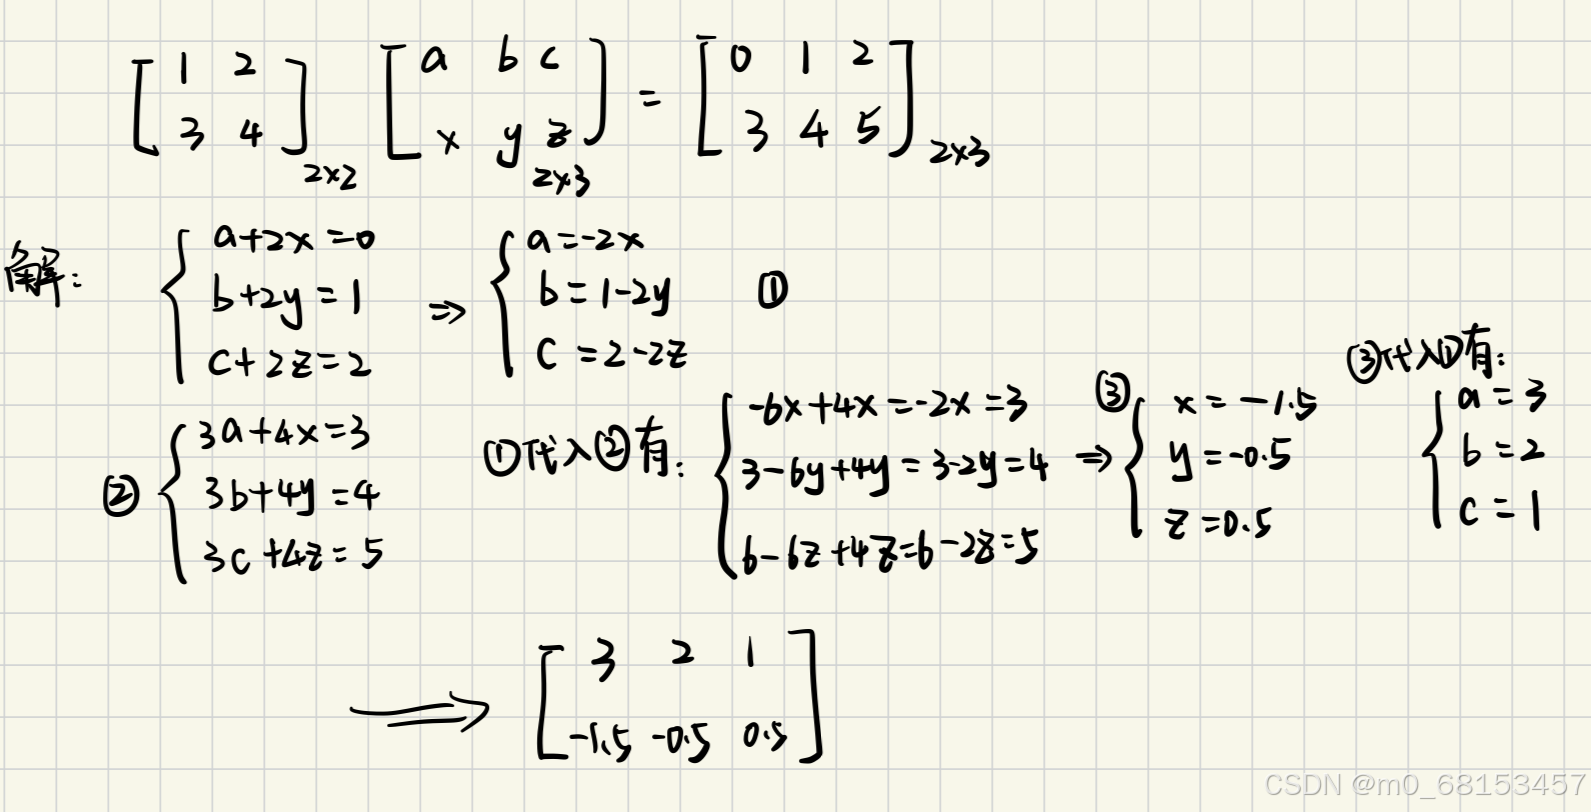 [1 2 [a b c ] = [0 1 2
3 4]2×2 x y z]2×3 3 4 5]2×3
解: { a+2x=0 ⇒ { a=-2x
b+2y=1 b=1-2y ①
c+2z=2 c=2-2z
② { 3a+4x=3
3b+4y=4
3c+4z=5
①代入②有: { -6x+4x=-2x=3
3-6y+4y=3-2y=4
6-6z+4z=6-2z=5
⇒ ③ { x=-1.5
y=-0.5
z=0.5
③代入①有:
{ a=3
b=2
c=1
⇒ [3 2 1
-1.5 -0.5 0.5]
CSDN @m0_68153457